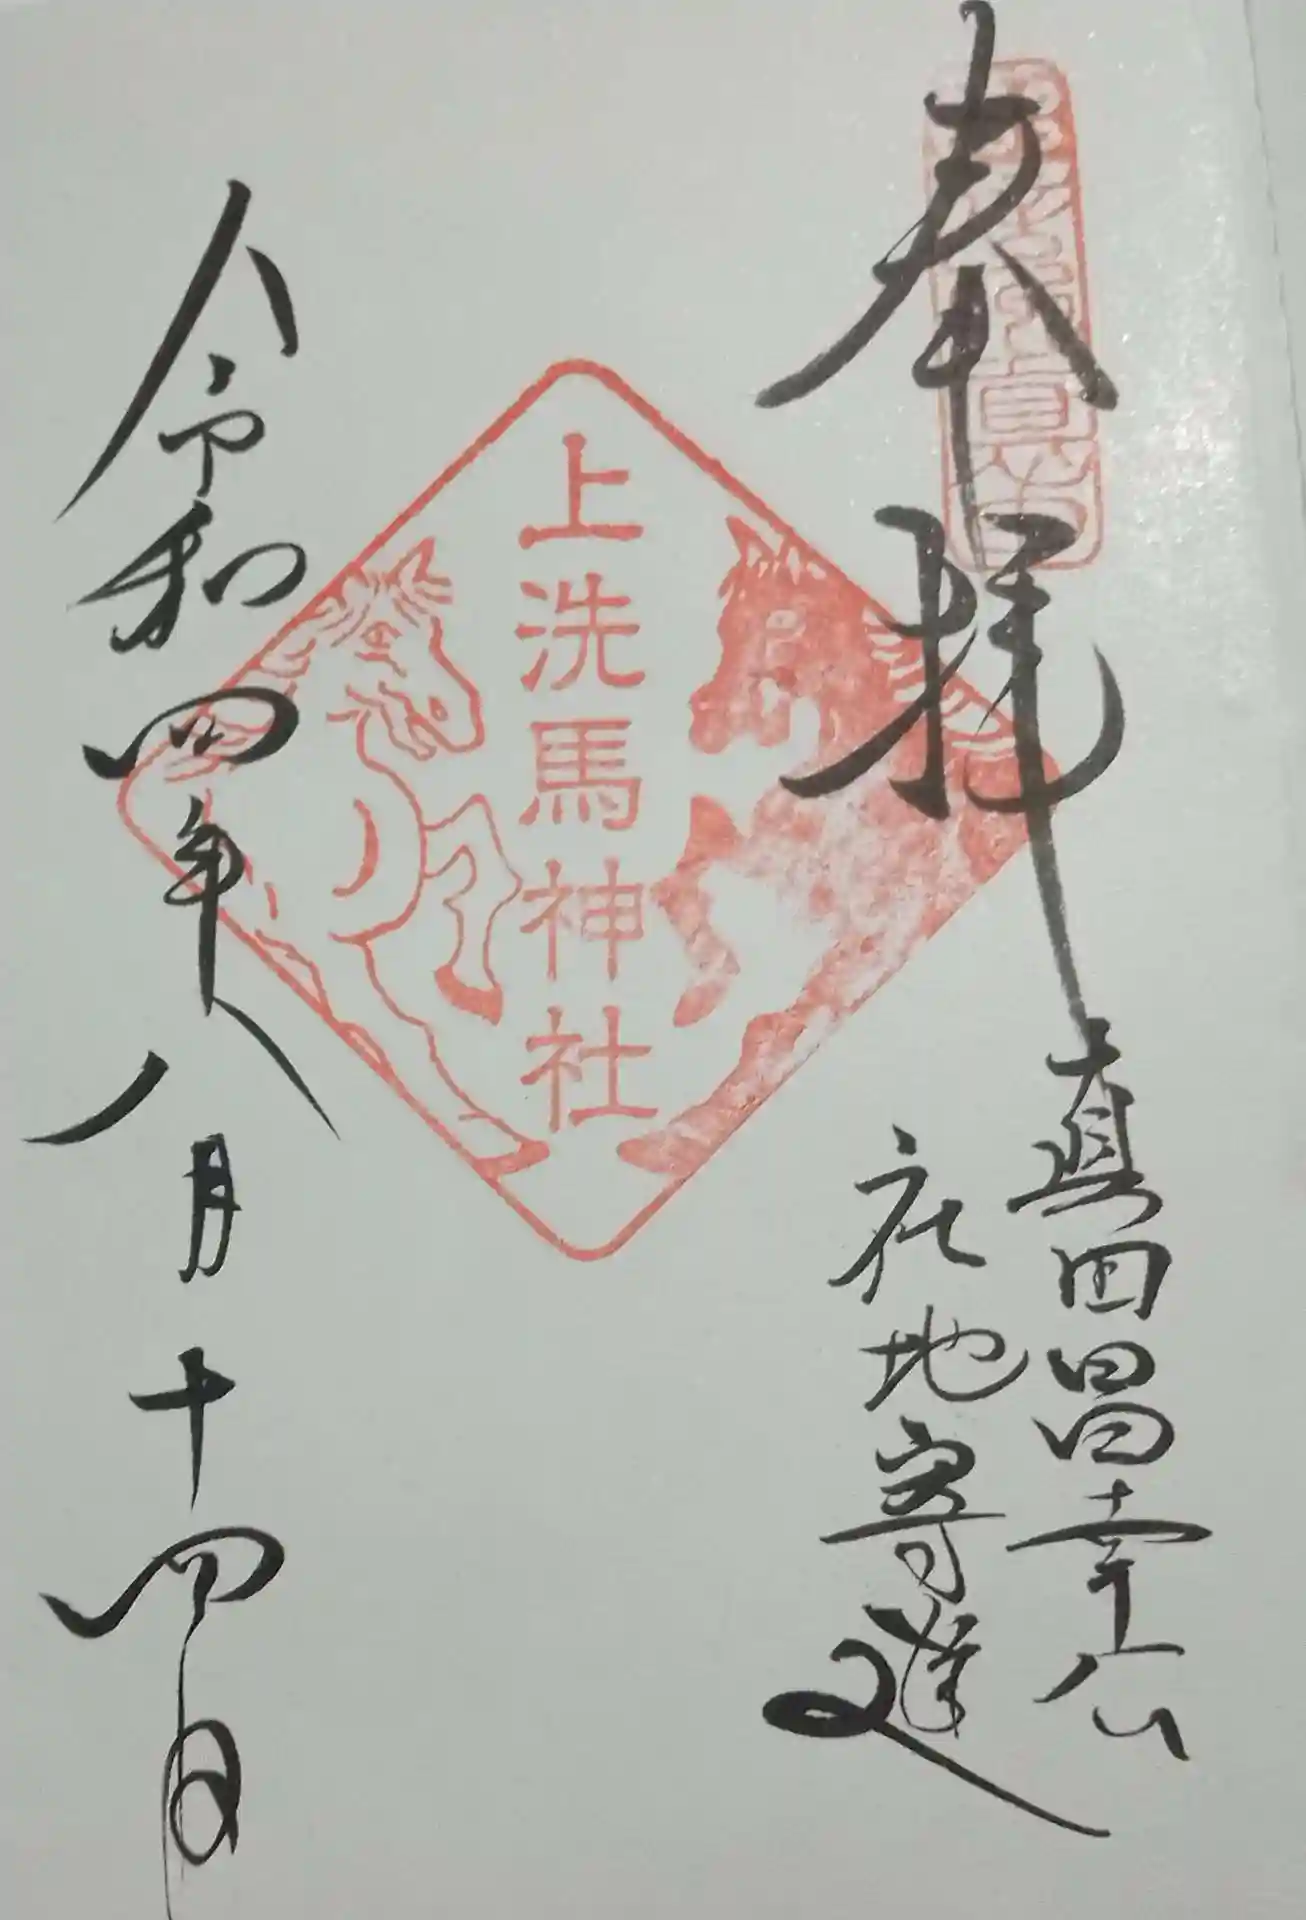 奉拝
真田昌幸公
社地寄進
上洗馬神社
令和四年八月十四日